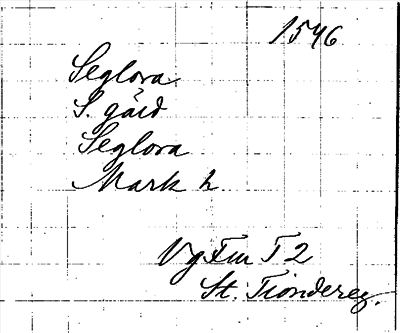 1546
Seglora
S. gård
Seglora
Mark h
Vg Fur T 2
St. Tiondereg.